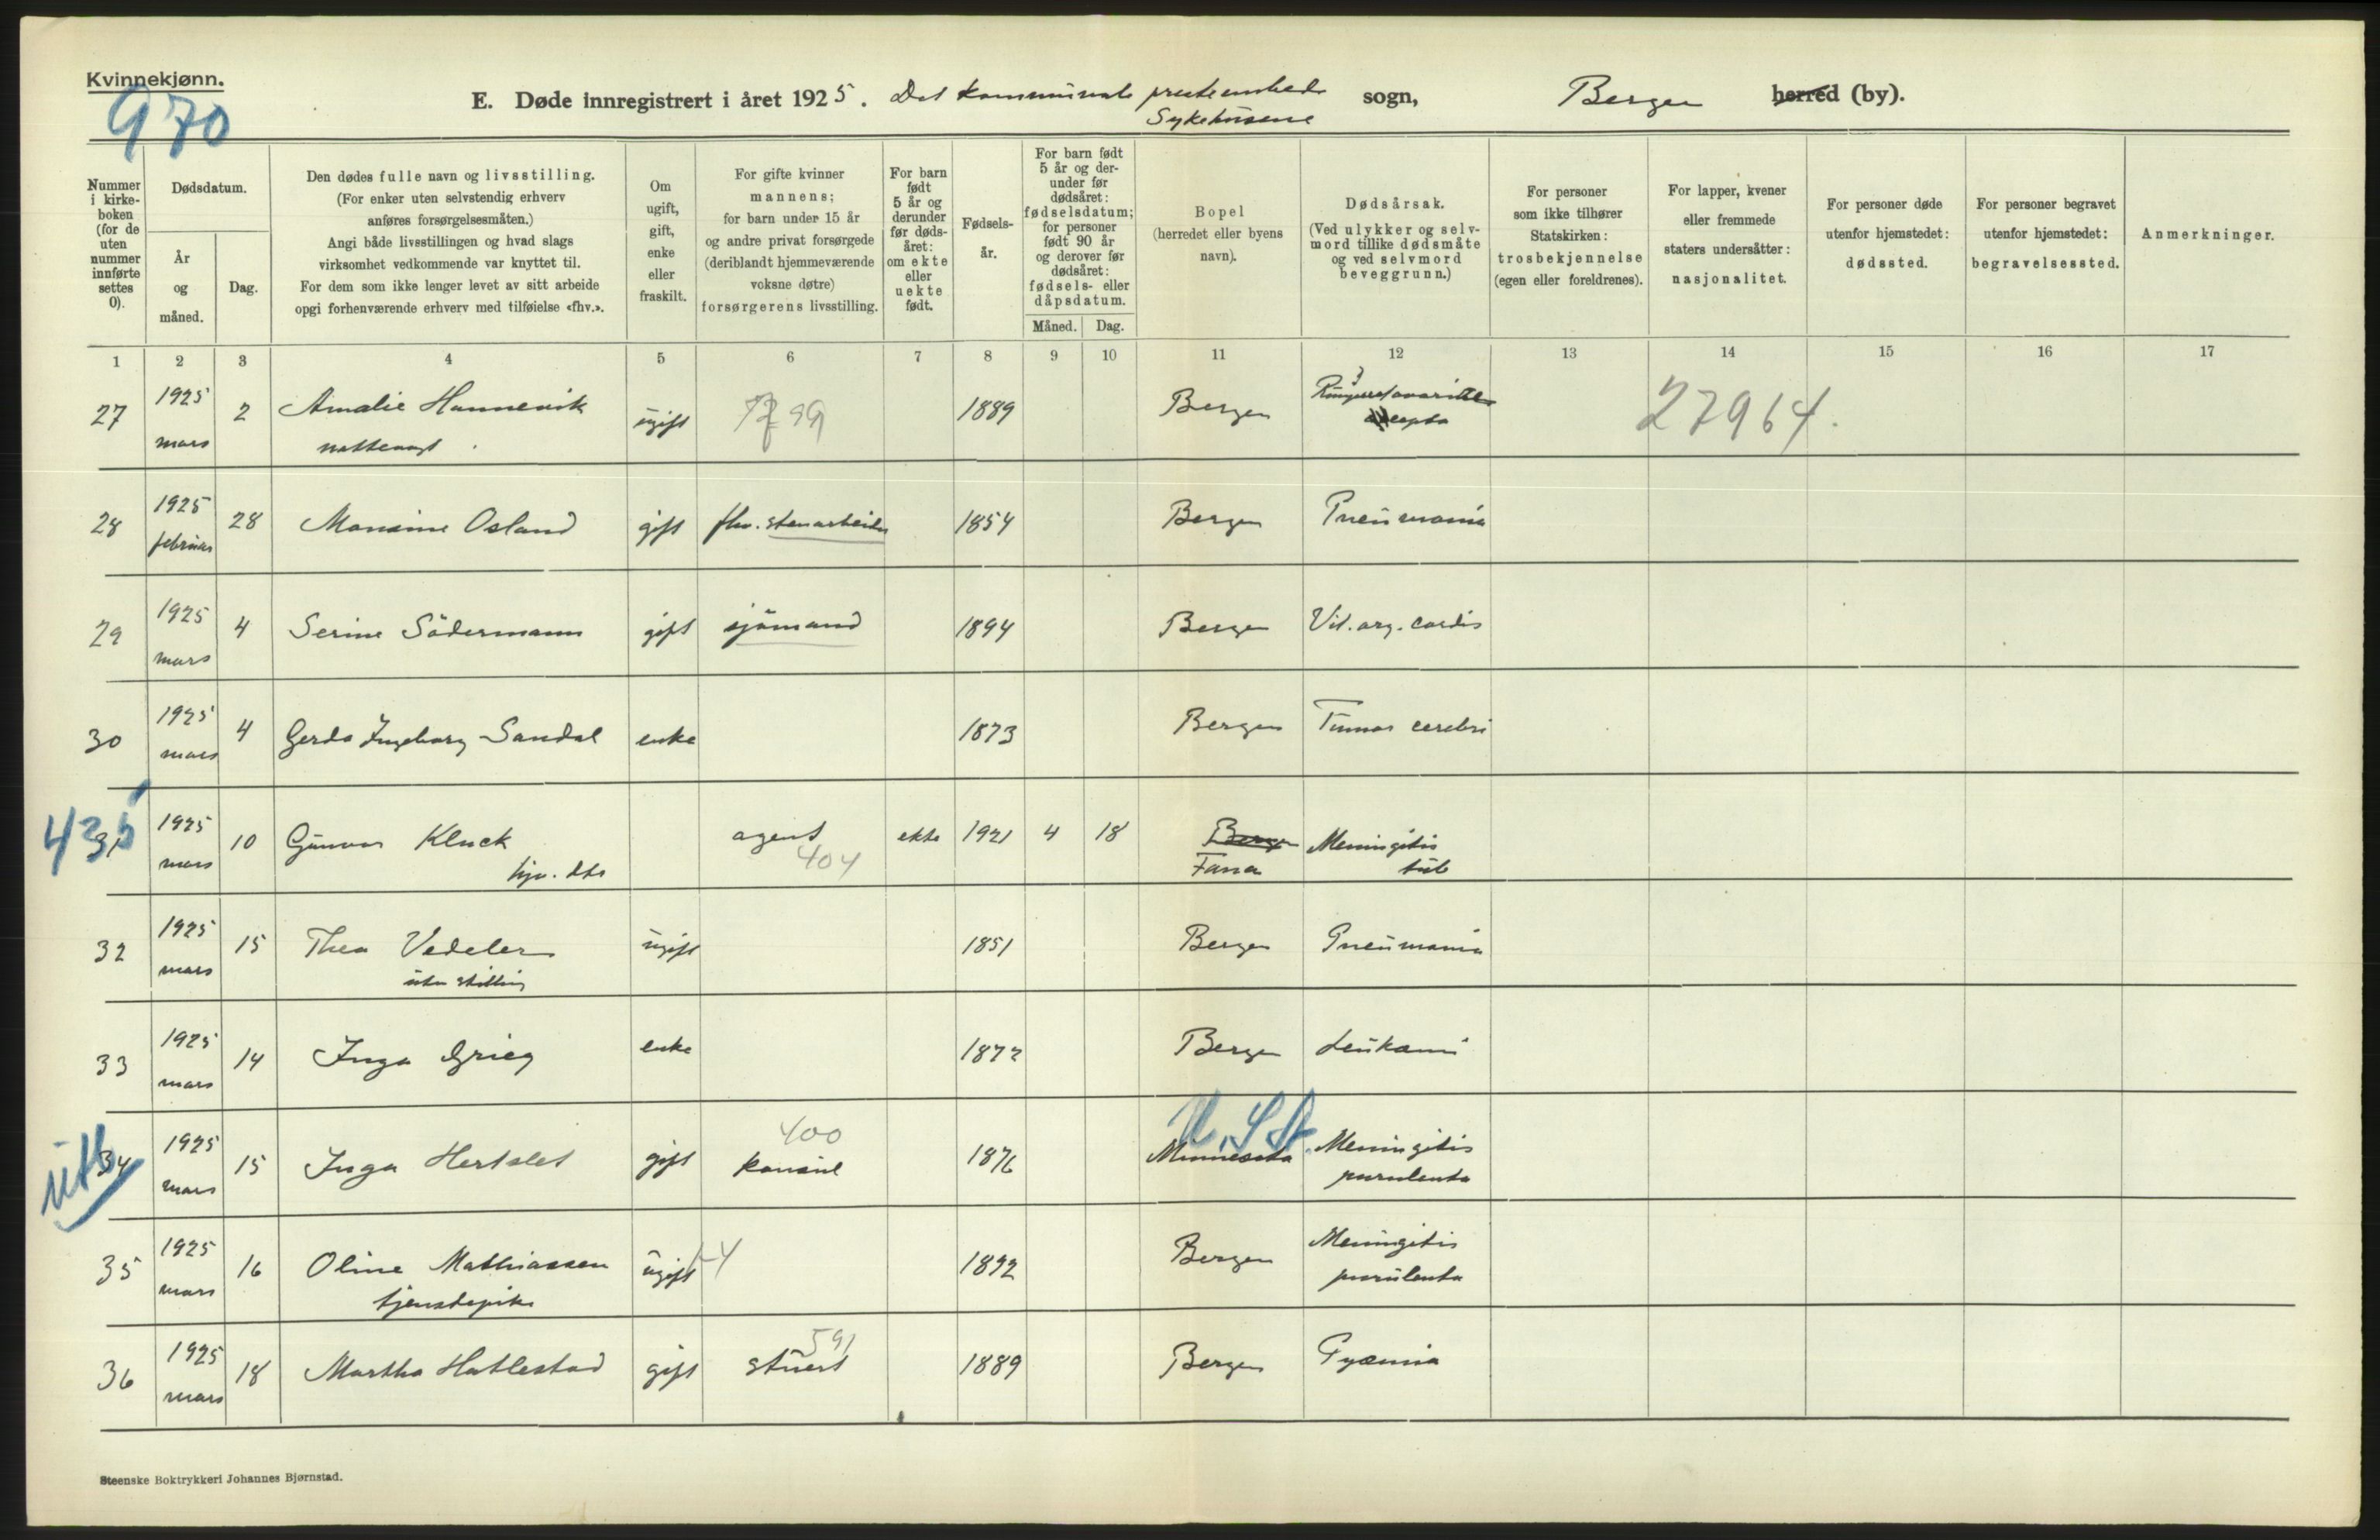 Kvinnekjønn.
970
E. Døde innregistrert i året 1925. Det kommunale presteembede sogn, Bergen herred (by).
Sykehusene
Nummer i kirkeboken (for de uten nummer innførte settes 0).
Dødsdatum.
År og måned.
Dag.
Den dødes fulle navn og livsstilling.
(For enker uten selvstendig erhverv
anføres forsørgelsesmåten.)
Angi både livsstillingen og hvad slags
virksomhet vedkommende var knyttet til.
For dem som ikke lenger levet av sitt arbeide
opgi forhenværende erhverv med tilføielse «fhv.».
Om ugift, gift, enke eller fraskilt.
For gifte kvinner
mannens;
for barn under 15 år
og andre privat forsørgede
(deriblandt hjemmeværende
voksne døtre)
forsørgerens livsstilling.
For barn født 5 år og derunder før dødsåret: om ekte eller uekte født.
Fødselsår.
For barn født 5 år og derunder før dødsåret: fødselsdatum; for personer født 90 år og derover før dødsåret: fødsels- eller dåpsdatum.
Måned. Dag.
Bopel
(herredet eller byens
navn).
Dødsårsak.
(Ved ulykker og selvmord tillike dødsmåte og ved selvmord beveggrunn.)
For personer
som ikke tilhører
Statskirken:
trosbekjennelse
(egen eller foreldrenes).
For lapper, kvener
eller fremmede
staters undersåtter:
nasjonalitet.
For personer døde
utenfor hjemstedet:
dødssted.
For personer begravet
utenfor hjemstedet:
begravelsessted.
Anmerkninger.
1 2 3 4 5 6 7 8 9 10 11 12 13 14 15 16 17
27 1925 mars 2 Amalie Hannevik ugift 99 1889 Bergen 27964.
28 1925 februar 28 Monsine Osland gift fhv. stenarbeider 1854 Bergen Pneumonia
29 1925 mars 4 Serine Södermann gift sjömand 1894 Bergen Vit. org. cordis
30 1925 mars 4 Gerda Ingeborg Sandal enke 1873 Bergen Tumor cerebri
435
31 1925 mars 10 Gunvor Kluck agent 404 ekte 1921 4 18 Bergen Meningitis
hjv. dtr Fana tub
32 1925 mars 15 Thea Vedeler ugift 1851 Bergen Pneumonia
uten stilling
33 1925 mars 14 Inga Grieg enke 1872 Bergen Leukämi
utl
34 1925 mars 15 Inga Hertslet gift 400 konsul 1876 U.S.A. Minnesota Meningitis
purulenta
35 1925 mars 16 Oline Mathiassen ugift 1892 Bergen Meningitis
tjenstepike purulenta
36 1925 mars 18 Martha Hatlestad gift 591 stuert 1889 Bergen Pyæmia
Steenske Boktrykkeri Johannes Bjørnstad.